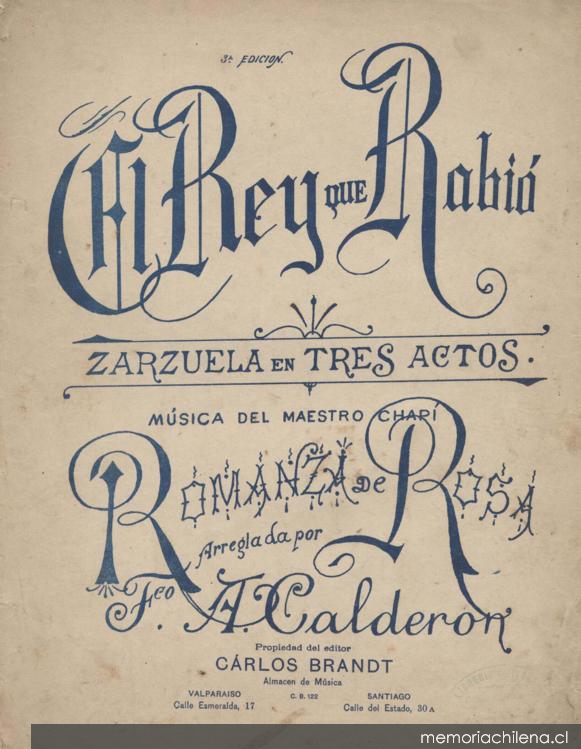 3ª EDICION.
El Rey QUE Rabió
ZARZUELA EN TRES ACTOS.
MÚSICA DEL MAESTRO CHAPÍ
ROMANZA DE ROSA
Arreglada por
Fco. A. Calderon
Propiedad del editor
CÁRLOS BRANDT
Almacen de Música
VALPARAISO C. B. 122 SANTIAGO
Calle Esmeralda, 17 Calle del Estado, 30 A
memoriachilena.cl